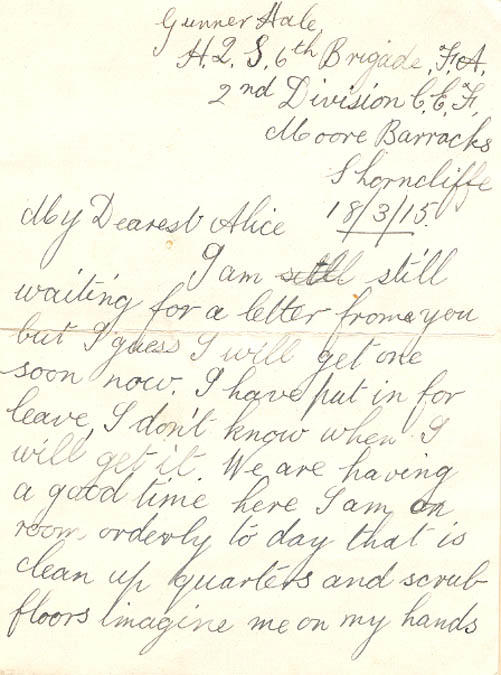 Gunner Hale,
H.Q. S. 6th Brigade, F.A.
2nd Division C.E.F,
Moore Barracks
Shorncliffe
18/3/15.
My Dearest Alice
I am still still
waiting for a letter from you
but I guess I will get one
soon now. I have put in for
leave, I don't know when I
will get it. We are having
a good time here I am on
room orderly to day that is
clean up quarters and scrub
floors imagine me on my hands